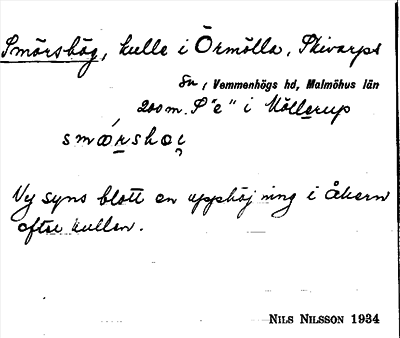 Smörshög, kulle i Örmölla, Skivarps
sn, Vemmenhögs hd, Malmöhus län
200 m. S "e" i Möllerup
smǿrshoi̯
Ny syns blott en upphöjning i åkern
efter kullen.
NILS NILSSON 1934